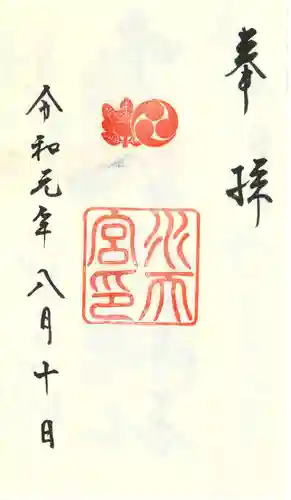 奉拝
水天
宮印
令和元年八月十日